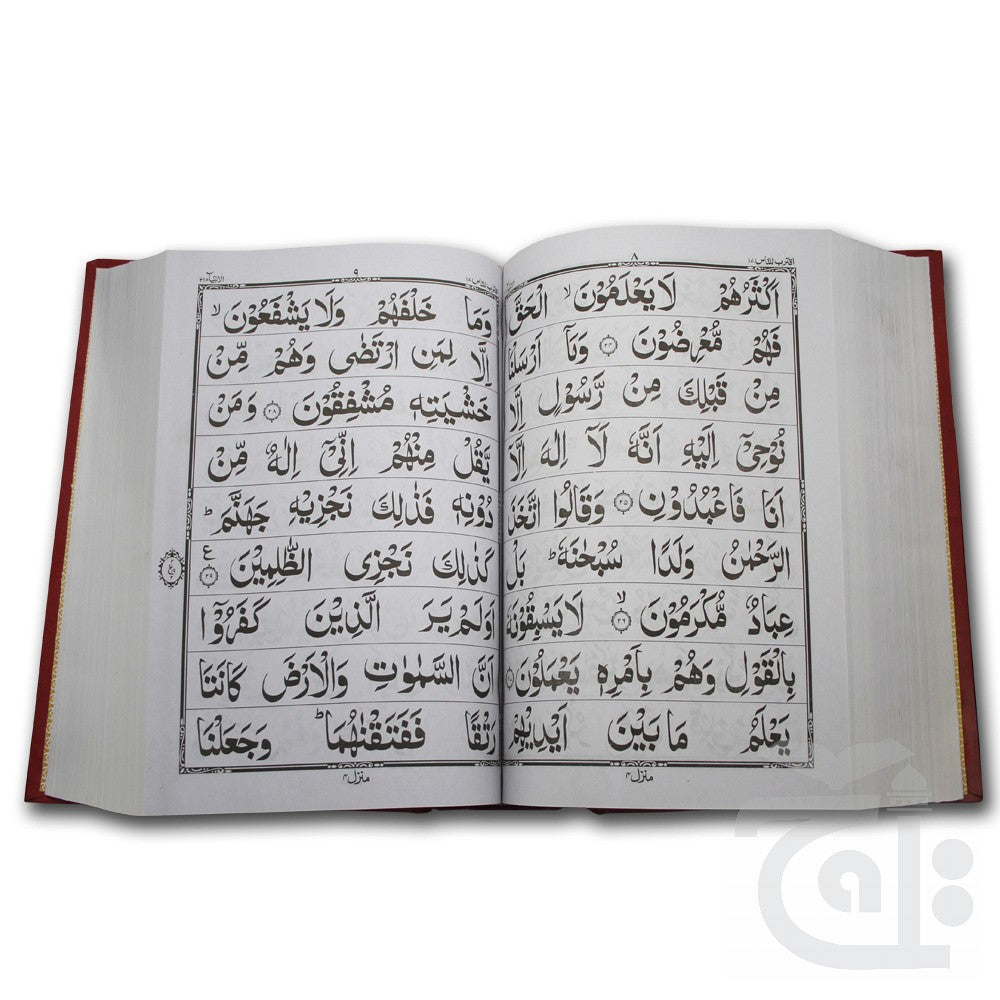 اقترب للناس ١٧
٨
اَكْثَرُهُمْ لَا يَعْلَمُوْنَ ۙ الْحَقَّ
فَهُمْ مُّعْرِضُوْنَ ﴿۲۴﴾ وَمَاۤ اَرْسَلْنَا
مِنْ قَبْلِكَ مِنْ رَّسُوْلٍ اِلَّا
نُوْحِیْۤ اِلَیْهِ اَنَّهٗ لَاۤ اِلٰهَ اِلَّاۤ
اَنَا فَاعْبُدُوْنِ ﴿۲۵﴾ وَقَالُوا اتَّخَذَ
الرَّحْمٰنُ وَلَدًا سُبْحٰنَهٗ ؕ بَلْ
عِبَادٌ مُّكْرَمُوْنَ ۙ﴿۲۶﴾ لَا یَسْبِقُوْنَهٗ
بِالْقَوْلِ وَهُمْ بِاَمْرِهٖ یَعْمَلُوْنَ ﴿۲۷﴾
یَعْلَمُ مَا بَیْنَ اَیْدِیْهِمْ
منزل ۴
الانبیآء ٢١
٩
وَمَا خَلْفَهُمْ وَلَا یَشْفَعُوْنَ ۙ
اِلَّا لِمَنِ ارْتَضٰی وَهُمْ مِّنْ
خَشْیَتِهٖ مُشْفِقُوْنَ ﴿۲۸﴾ وَمَنْ
یَّقُلْ مِنْهُمْ اِنِّیْۤ اِلٰهٌ مِّنْ
دُوْنِهٖ فَذٰلِكَ نَجْزِیْهِ جَهَنَّمَ ؕ
كَذٰلِكَ نَجْزِی الظّٰلِمِیْنَ ﴿۲۹﴾ ع
اَوَلَمْ یَرَ الَّذِیْنَ كَفَرُوْۤا
اَنَّ السَّمٰوٰتِ وَالْاَرْضَ كَانَتَا
رَتْقًا فَفَتَقْنٰهُمَا ؕ وَجَعَلْنَا
منزل ۴